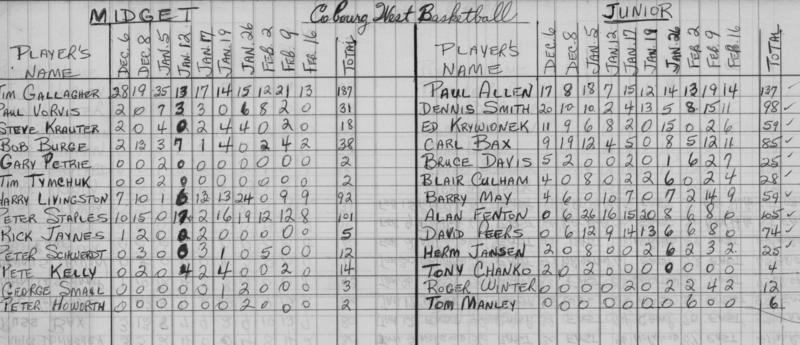 MIDGET Cobourg West Basketball JUNIOR
PLAYER'S NAME DEC. 6 DEC. 8 JAN. 5 JAN. 12 JAN. 17 JAN. 19 JAN. 26 FEB. 2 FEB. 9 FEB. 16 TOTAL PLAYER'S NAME DEC. 6 DEC. 8 JAN. 5 JAN. 12 JAN. 17 JAN. 19 JAN. 26 FEB. 2 FEB. 9 FEB. 16 TOTAL
TIM GALLAGHER 28 19 35 13 17 14 15 12 21 13 187 PAUL ALLEN 17 8 18 7 15 12 14 13 19 14 137 ✓
PAUL VORVIS 2 0 7 3 3 0 6 8 2 0 31 DENNIS SMITH 20 10 10 2 4 13 5 8 15 11 98 ✓
STEVE KRAUTER 2 0 4 0 2 4 4 0 2 0 18 ED KRYWIONEK 11 9 6 8 2 0 15 0 2 6 59 ✓
BOB BURGE 2 13 3 7 1 4 0 2 4 2 38 CARL BAX 9 19 12 4 5 0 8 5 12 11 85 ✓
GARY PETRIE 0 0 2 0 0 0 0 0 0 0 2 BRUCE DAVIS 5 2 0 0 2 0 1 6 2 7 25 ✓
TIM TYMCHUK 0 0 2 0 0 0 0 0 0 0 2 BLAIR CULHAM 4 0 8 0 2 2 6 0 2 4 28 ✓
HARRY LIVINGSTON 7 10 1 6 12 13 24 0 9 9 92 BARRY MAY 4 6 0 10 7 0 7 2 14 9 59 ✓
PETER STAPLES 10 15 0 17 2 16 19 12 12 8 101 ALAN FENTON 0 6 26 16 15 20 8 6 8 0 105 ✓
RICK JAYNES 1 2 0 2 0 0 0 0 0 0 5 DAVID PEERS 0 6 12 9 14 13 6 6 8 0 74 ✓
PETER SCHWERDT 0 3 0 0 3 1 0 5 0 0 12 HERM JANSEN 2 0 8 0 0 2 6 2 3 2 25 ✓
PETE KELLY 0 2 0 4 2 4 0 0 2 0 14 TONY CHANKO 2 0 2 0 0 0 0 0 0 0 4
GEORGE SMALL 0 0 0 0 0 1 2 0 0 0 3 ROGER WINTER 0 0 0 0 2 0 2 2 4 2 12
PETER HOWORTH 0 0 0 0 0 0 2 0 0 0 2 TOM MANLEY 0 0 0 0 0 0 0 6 0 0 6